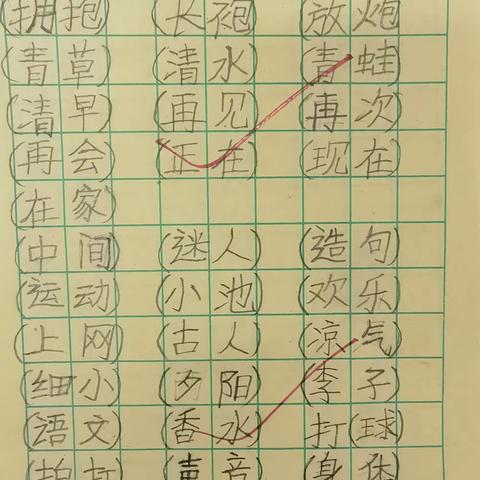 (拥抱) (长袍) (放炮)
(青草) (清水) (青蛙)
(清早) (再见) (再次)
(再会) (正在) (现在)
(在家)
(中间) (迷人) (造句)
(运动) (小池) (欢乐)
(上网) (古人) (凉气)
(细小) (夕阳) (李子)
(语文) (香水) 打(球)
(拍打) (声音) (身体)